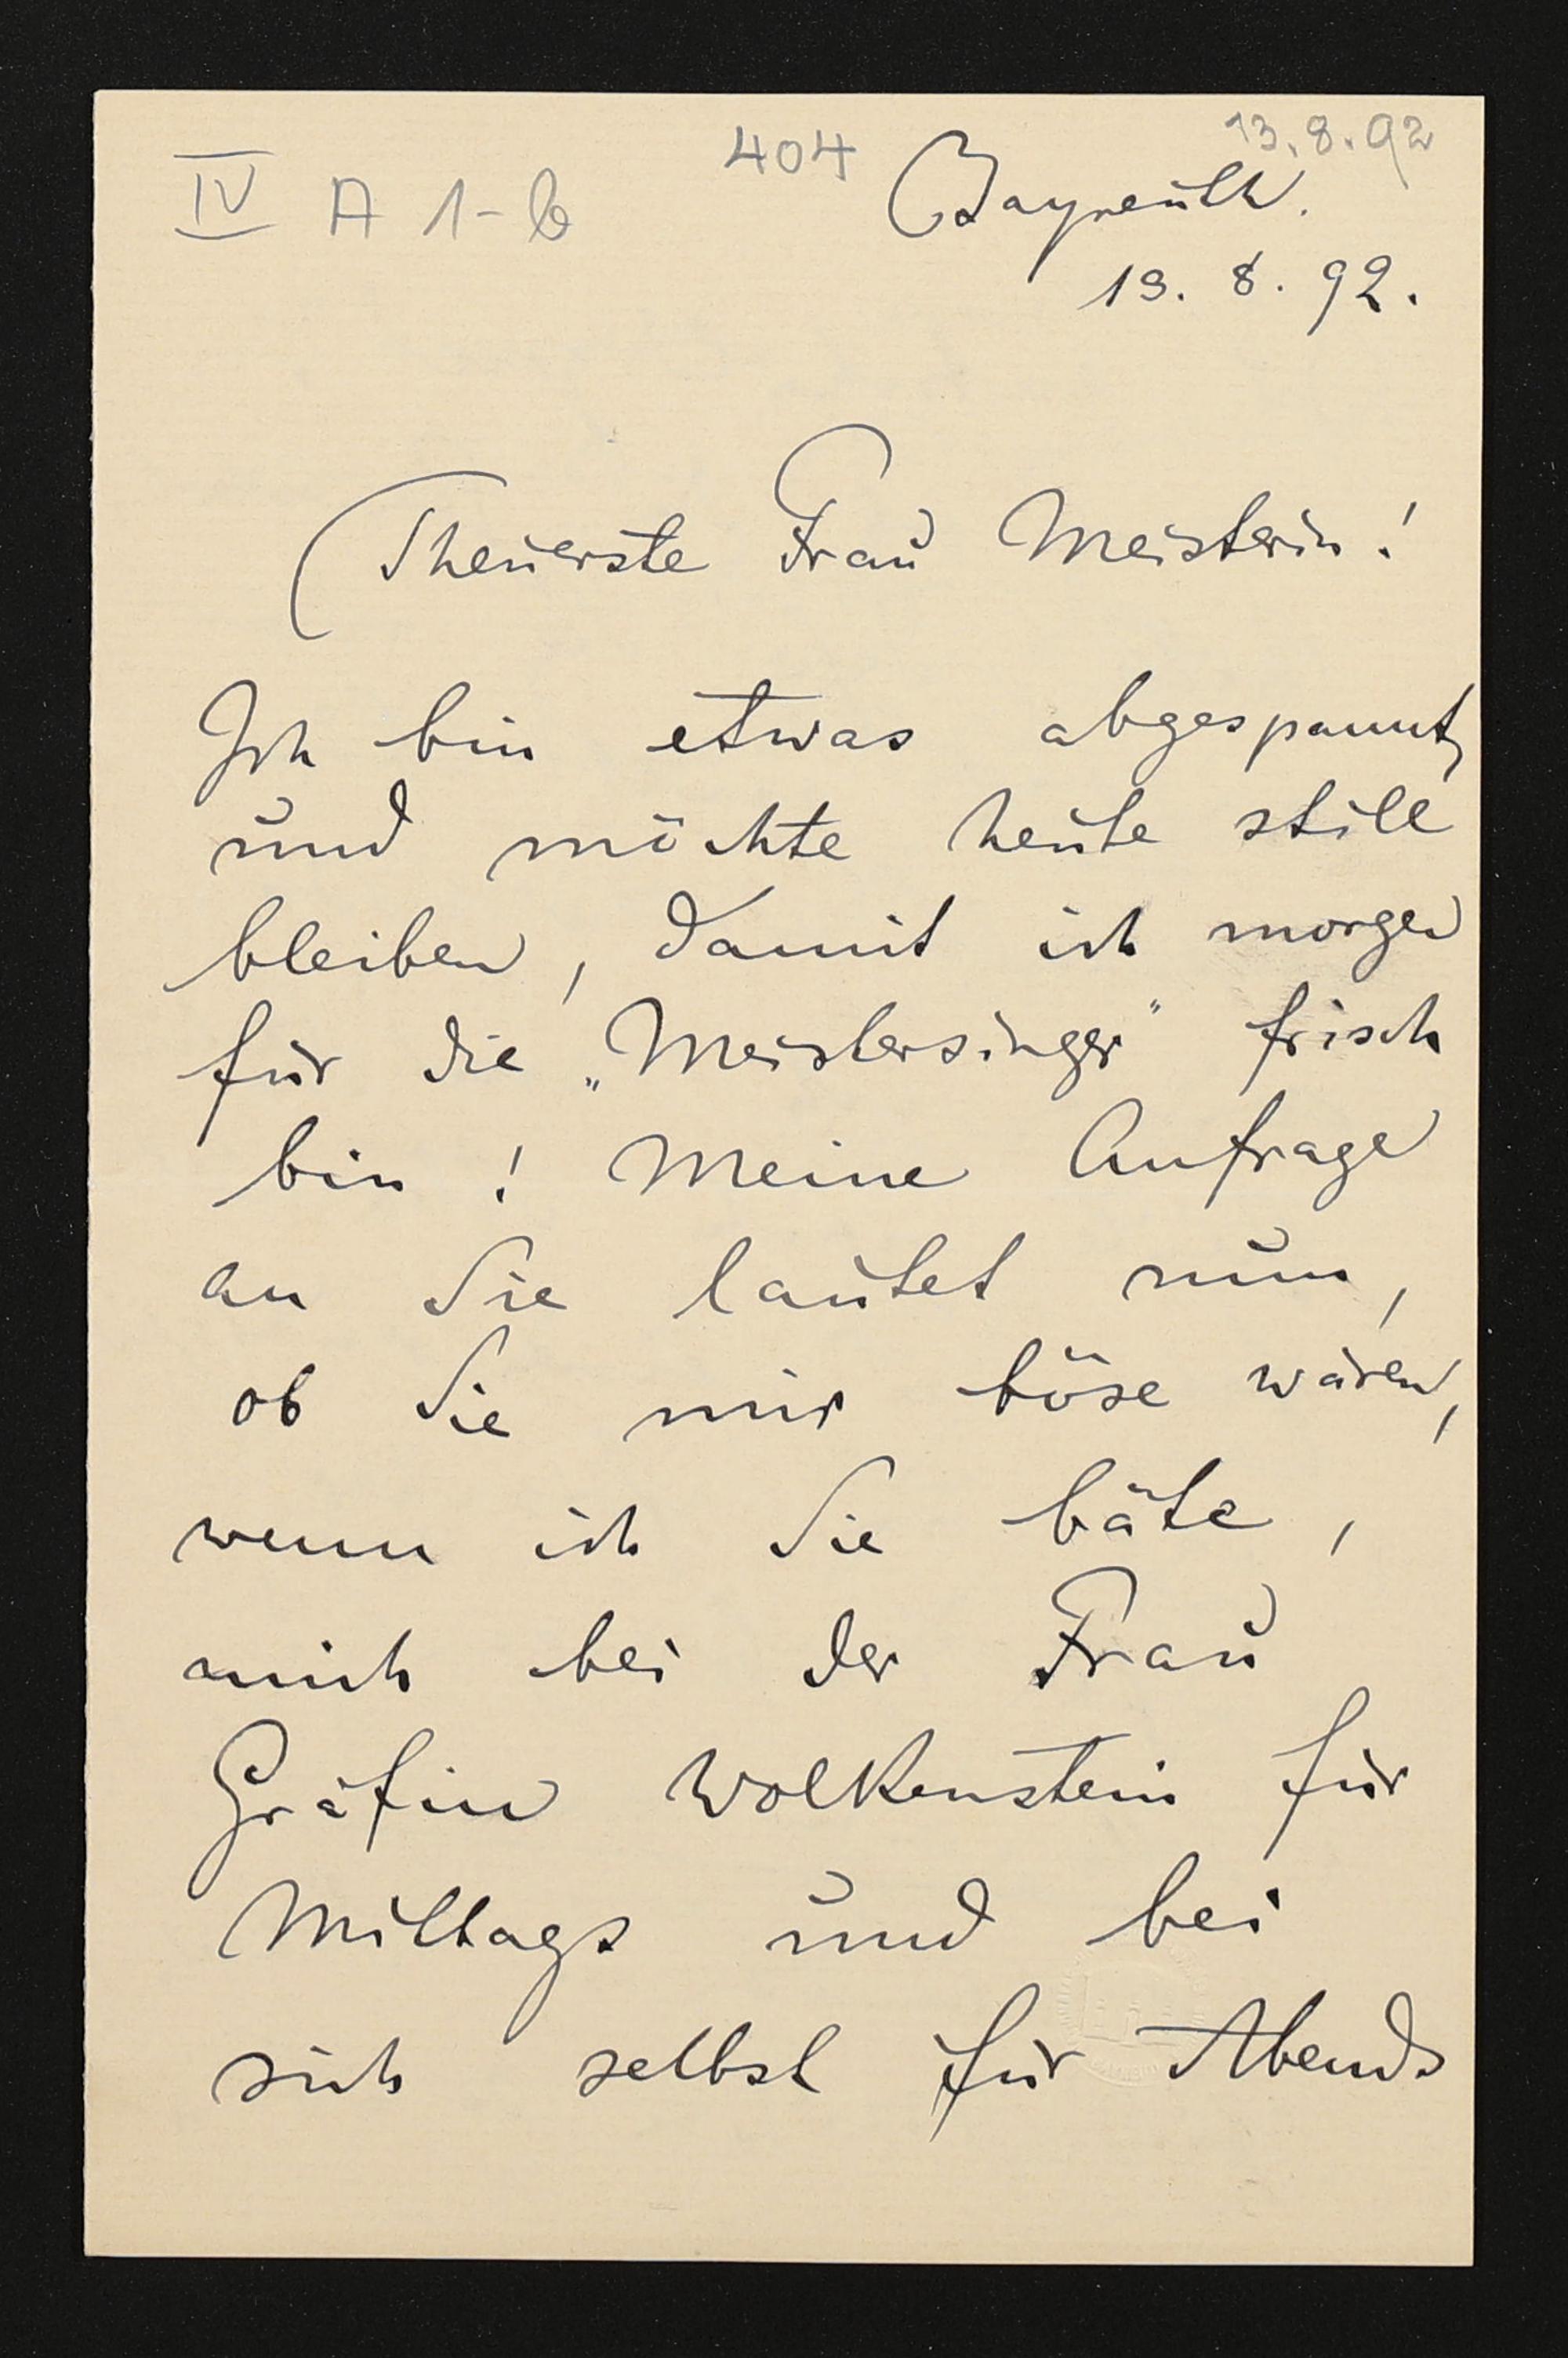 13.8.92
404
IV A 1-b
Bayreuth.
13. 8. 92.
Theuerste Frau Meisterin!
Ich bin etwas abgespannt,
und möchte heute still
bleiben, damit ich morgen
für die „Meistersinger" frisch
bin! Meine Anfrage
an Sie lautet nun,
ob Sie mir böse wären,
wenn ich Sie bäte,
mich bei der Frau
Gräfin Wolkenstein für
Mittags und bei
sich selbst für Abends